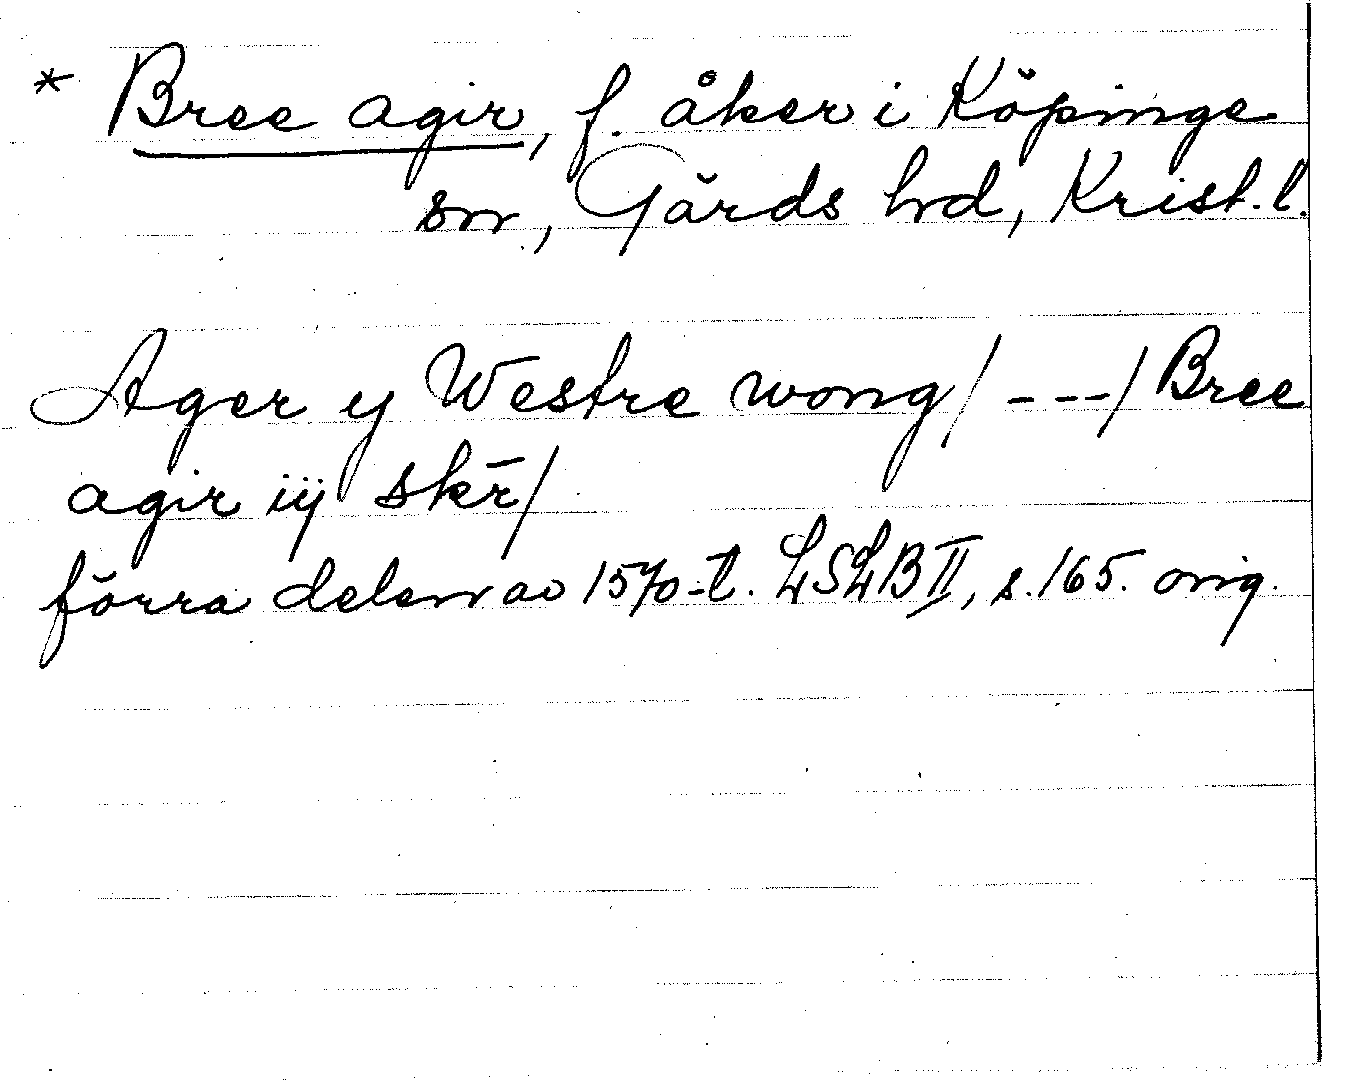 * Bree agir, f. åker i Köpinge
sn, Gärds hd, Krist. l.
Ager y Westre wong/ ---/ Bree
agir iij skr̄/
förra delen av 1570-t. LSLB II, s. 165. orig.